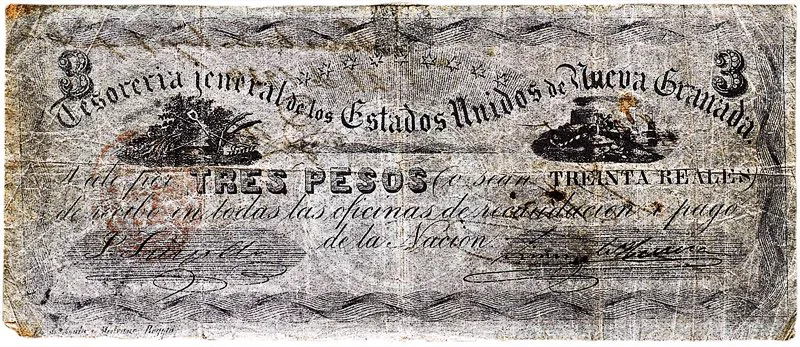 3 3
Tesoreria jeneral de los Estados Unidos de Nueva Granada.
Vale por TRES PESOS (o sean TREINTA REALES)
de recibo en todas las oficinas de recaudacion i pago
de la Nacion.
Bogotá